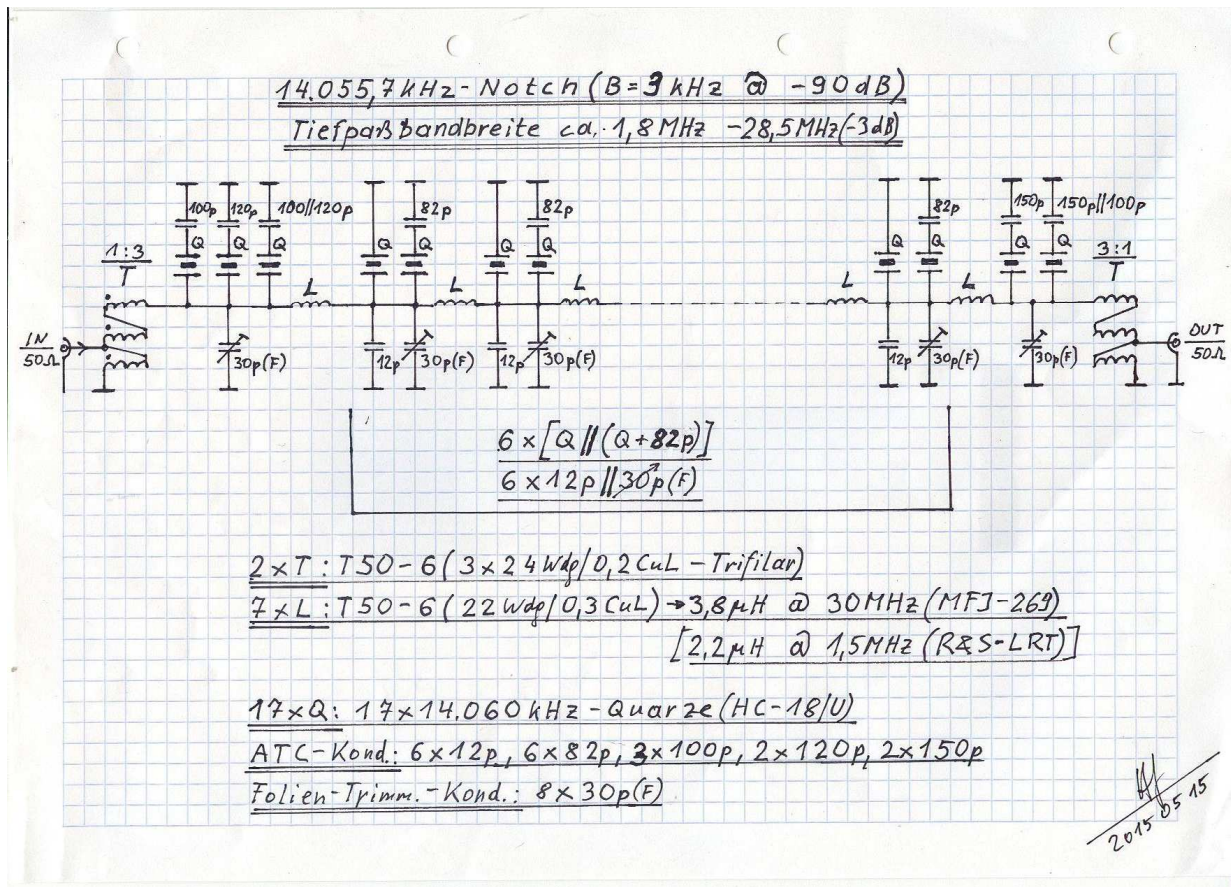 14.055,7 kHz - Notch (B = 3 kHz @ -90 dB)
Tiefpaßbandbreite ca. 1,8 MHz - 28,5 MHz (-3 dB)
100p 120p 100//120p 82p 82p 82p 150p 150p//100p
Q Q Q Q Q Q Q Q Q Q Q
1:3
T
3:1
T
L L L L L
IN
50Ω
OUT
50Ω
30p(F) 12p 30p(F) 12p 30p(F) 12p 30p(F) 30p(F)
6 x [Q // (Q + 82p)]
6 x 12p // 30p (F)
2 x T : T50-6 ( 3 x 24 Wdg / 0,2 CuL - Trifilar)
7 x L : T50-6 ( 22 Wdg / 0,3 CuL ) → 3,8 µH @ 30 MHz (MFJ-269)
[2,2 µH @ 1,5 MHz (R&S-LRT)]
17 x Q : 17 x 14.060 kHz - Quarze (HC-18/U)
ATC-Kond.: 6 x 12p, 6 x 82p, 3 x 100p, 2 x 120p, 2 x 150p
Folien-Trimm.-Kond.: 8 x 30p (F)
2015 05 15